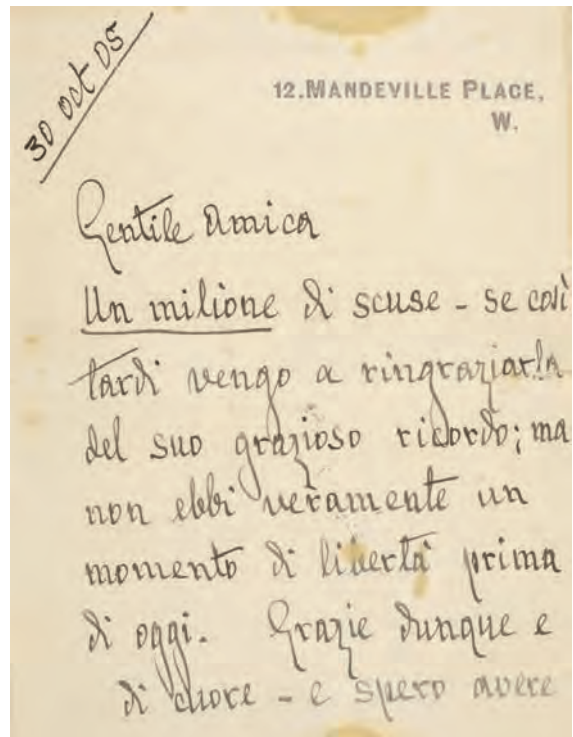 30 oct 05
12. MANDEVILLE PLACE,
W.
Gentile Amica
Un milione di scuse - se così
tardi vengo a ringraziarla
del suo grazioso ricordo; ma
non ebbi veramente un
momento di libertà prima
di oggi. Grazie dunque e
di cuore - e spero avere